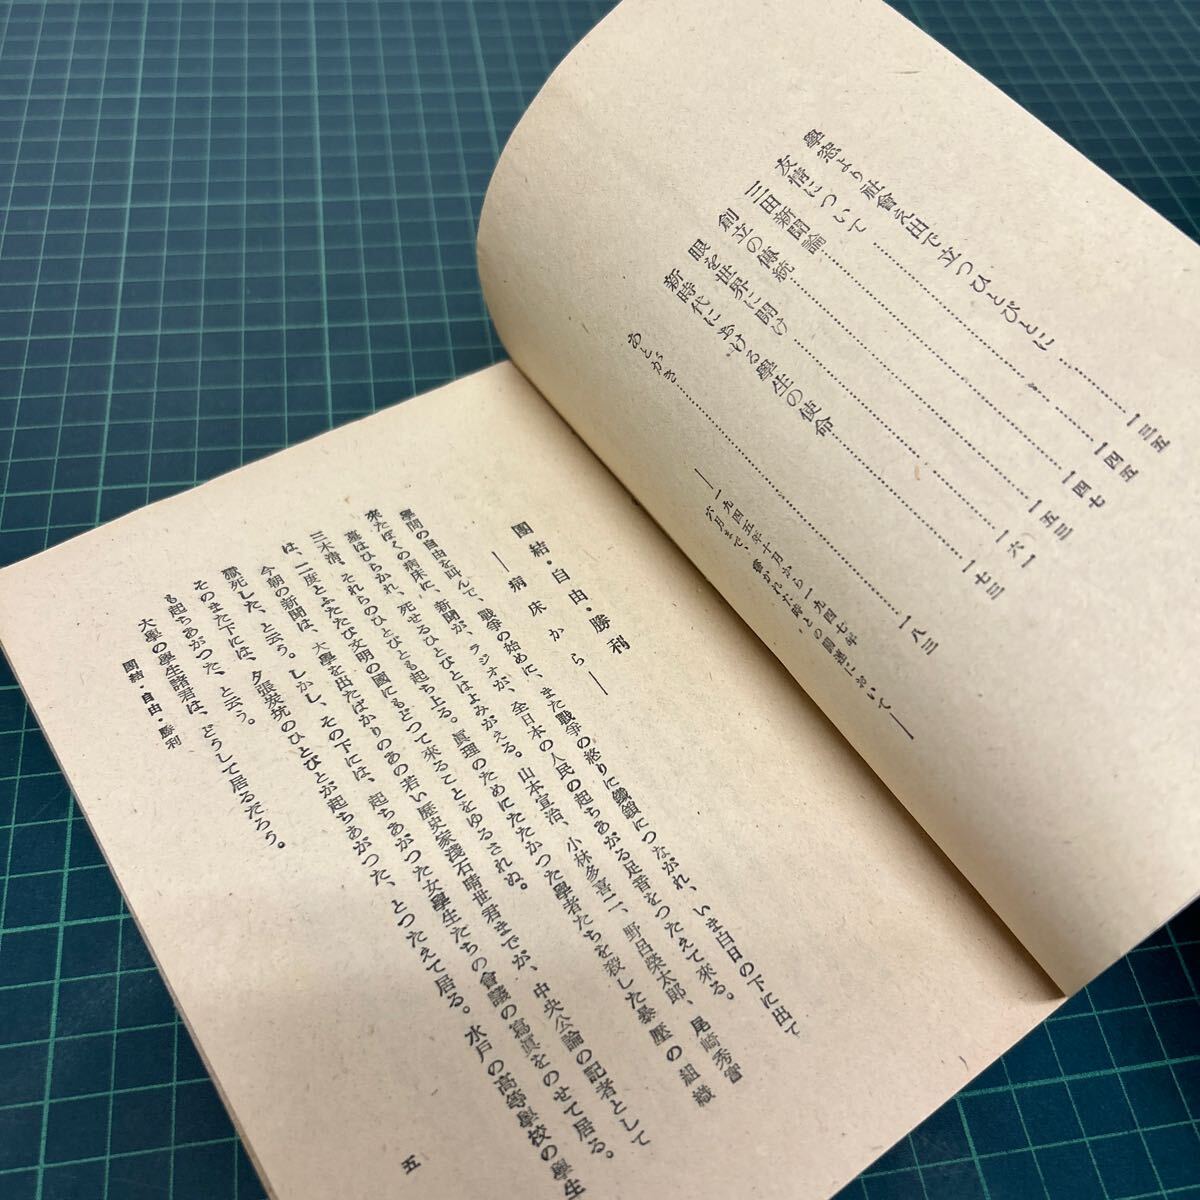 學窓より社會え出で立つひとびとに……一三五
友情について……一四五
三田新聞論……一四七
創立の傳統……一五三
眼を世界に開け……一六一
新時代における學生の使命……一七三
あとがき……一八三
―一九四五年十月から一九四七年
六月まで、書かれた時との關連において―
團結・自由・勝利
―病床から―
學問の自由を叫んで、戰爭の始めに、また戰爭の終りに鐵鎖につながれ、いま白日の下に出て
來たぼくの病床に、新聞が、ラジオが、全日本の人民の起ちあがる足音をつたえて來る。
墓はひらかれ、死せるひとびとはよみがえる。山本宣治、小林多喜二、野呂榮太郎、尾崎秀實
三木清、それらのひとびとも起ち上る。眞理のためにたたかつた學者たちを殺した暴壓の組織
は、二度とふたたび文明の國にもどつて來ることをゆるされぬ。
今朝の新聞は、大學を出たばかりのあの若い歴史家淺石晴世君までが、中央公論の記者として
獄死した、と云う。しかし、その下には、起ちあがつた女學生たちの會議の寫眞をのせて居る。
そのまた下には、夕張炭坑のひとびとが起ちあがつた、とつたえて居る。水戸の高等學校の學生
も起ちあがつた、と云う。
大學の學生諸君は、どうして居るだろう。
團結・自由・勝利
五